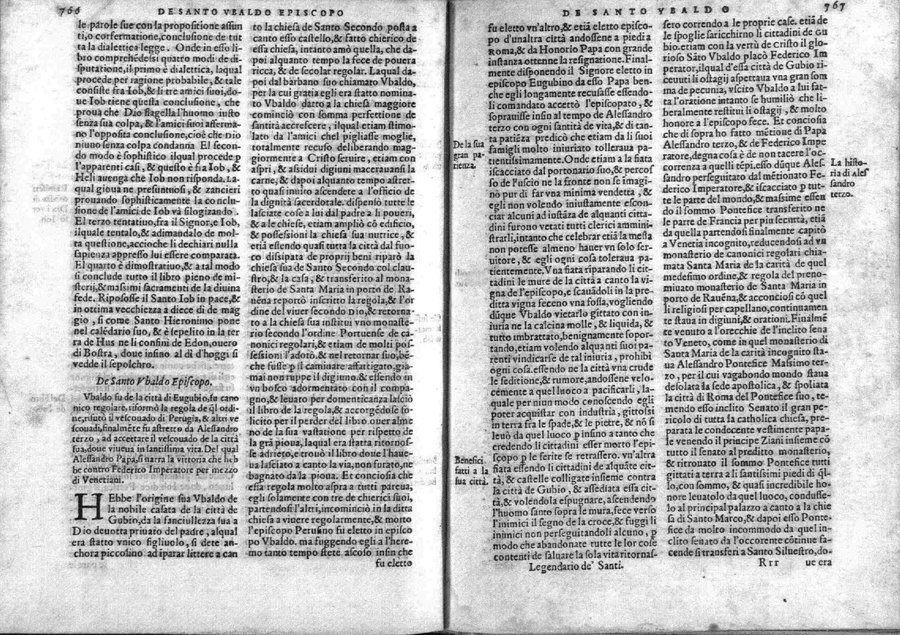 766
DE SANTO VBALDO EPISCOPO
le parole sue con la propositione assun
ti, o confermatione, conclusione de tut
ta la dialettica legge. Onde in esso li
bro comprehēdesi quatro modi de di-
sputatione, il primo è dialettica, laqual
procede per ragione probabile, & tale
consiste fra Iob, & li tre amici suoi, do-
ue Iob tiene questa conclusione, che
proua che Dio flagella l'huomo iusto
senza sua colpa, & l'amici suoi afferma-
no l'opposita conclusione, cioè che niō
niuno senza colpa condanna El secon-
do modo è sophistico ilqual procede p
l'apparenti casi, & questo è fra Iob, &
Heli auenga che Iob non risponda. La
qual gioua ne presuntuosi, & zancieri
prouando sophisticamente la conclu-
sione dell'amici de Iob và silogizando.
El terzo è tentatiuo, fra il Signor, e Iob,
ilquale tentalo, & adimandalo de mol-
ta questione, accioche li dechiari nulla
sapienza appresso lui essere comparata.
El quarto è dimostratiuo, & a tal modo
si conclude tutto il libro pieno de mi-
sterij, & massimi sacramenti de la diuina
fede. Ripososse il Santo Iob in pace, &
in ottima vecchiezza a diece di de mag
gio, si come Santo Hieronimo pone
nel calēdario suo, & è sepelito in la ter
ra de Hus ne li confini de Edon, ouero
di Bostra, doue insino al dì d'hoggi si
vedde il sepolchro.
De Santo Vbaldo Episcopo.
Vbaldo fu de la città di Eugubio, fu ca-
nico regolare, riformò la regola de ql ordi-
ne, rifiutò il vescouado di Perugia, & altri ve
scouadi, finalmēte fu astretto da Alessandro
terzo, ad accettare il vescouado de la città
sua, doue viuena in santissima vita. Del qual
Alessandro Papa, si narra la vittoria che heb-
be contro Federico Imperatore per mezzo
di Venetiani.
HEbbe l'origine sua Vbaldo de
la nobile casata de la città de
Gubio, da la fanciullezza sua a
Dio deuotta priuato del padre, alqual
era stato vnico figliuolo, si dete an-
chora piccolino ad iparar littere a can
to la chiesa de Santo Secondo posta a
canto esso castello, & fatto chierico de
essa chiesa, intanto amò quella, che da-
poi alquanto tempo la fece de pouera
ricca, & de secolar regolar. Laqual da-
poi dal barbano suo chiamato Vbaldo,
per la cui gratia egli era stato nomina-
to Vbaldo datto a la chiesa maggiore
cominciò con somma perfettione de
santità accrescere, ilqual etiam stimo-
lato da l'amici chel pigliasse moglie,
totalmente recuso deliberando mag-
giormente a Cristo seruire, etiam con
aspri, & asidui digiuni maceraua nsi la
carne, & dapoi alquanto tempo astret-
to quasi inuito ascendite a l'officio de
la dignità sacerdotale. dispensò tutte le
lasciate cose a lui dal padre a li poueri,
& a le chiese, etiam ampliò co edificio,
& possessioni la chiesa sua nutrice, &
etiā essendo quasi tutta la città dal fuo-
co dissipata de proprij beni riparò la
chiesa sua de Santo Secondo col claus-
tro, & la casa, & transferito al mona-
sterio de Santa Maria in porto de Ra-
uēna reportò inscritto la regola, & l'or
dine del viuer secondo Dio, & retorna
to a la chiesa sua institui vno monaste-
rio secondo l'ordine Portuense de ca-
nonici regolari, & etiam de molti pos-
sessioni l'adotò, & nel retornar suo, bē-
che fusse p il caminare affaticato, gia-
mai non ruppe il digiuno, & essendo in
vn bosco adormentato con il compa-
gno, & leuato per domenticanza lasciò
il libro de la regola, & accorgēdose so-
licito per il perder del libro ouer alme
no de la sua vastatione per rispetto de
la grā pioua, laqual era stata ritornos-
se adrieto, e trouò il libro doue l'haue-
ua lasciato a canto la via, non furato, ne
bagnato da la pioua. Et conciosia che
essa regola molto aspra a tutti pareua,
egli solamente con tre de chierici suoi,
partendosi l'altri, incominciò in la ditta
chiesa a viuere regolarmente, & morto
l'episcopo Perusino fu eletto in episco-
po Vbaldo. ma fuggendo egli a l'here-
mo tanto tempo stete ascoso insin che
fu eletto
DE SANTO VBALDO
767
fu eletto vn'altro, & etiā eletto episco-
po d'vnaltra città andossene a piedi a
Roma, & da Honorio Papa con grande
instanza ottenne la resignatione. Final-
mente disponendo il Signore eletto in
episcopo Eugubino da esso Papa ben-
che egli longamente recusasse essendo-
li comandato accettò l'episcopato, &
soprauisse insino al tempo de Alesandro
terzo con ogni santità de vita, & di tan-
ta patiēza predicò che etiam da li suoi
famigli molto iniuriato tolleraua pa-
tientissimamente. Onde etiam a la fiata
iscacciato dal portonario suo, & percos-
so de l'uscio ne la fronte non se imagi-
nò pur di far vna minima vendetta, &
egli non volendo iniustamente escon-
ciar alcuni ad instāza de alquanti citta-
dini furono vetati tutti clerici ammini-
strarli, intanto che celebrar etiā la messa
non potesse almeno hauer vn solo ser-
uitore, & egli ogni cosa toleraua pa-
tientemente. Vna fiata riparando li cit-
tadini le mure de la città a canto la vi-
gna de l'episcopo, e scauādoli in la pre-
ditta vigna feceno vna fossa, vogliendo
dūque Vbaldo vietarlo gittato con in-
iuria ne la calcina molle, & liquida, &
tutto imbrattato, benignamente soppor-
tando, etiam volendo alquanti suoi pa-
renti vindicarse de tal iniuria, prohibi
ogni cosa. essendo ne la città vna crude
le seditione, & rumore, andasene veloc-
emente a quel luoco a pacificarli, la-
quale per niun modo conoscendo egli
poter acquistar con industria, gittossi
in terra fra le spade, & le pietre, & nō si
leuò da quel luoco p insino a tanto che
credendo li cittadini esser morto l'epi-
scopo p le ferite se retrassero. vn'altra
fiata essendo li cittadini de alquāte cit-
tà, & castelle colligate insieme contra
la città de Gubio, & assediata essa cit-
tà, & volēdola espugnare, ascendendo
l'huomo santo sopra le mura, fece verso
l'inimici il segno de la croce, & fuggì li
inimici non perseguitandoli alcuno, p
modo che abandonate tutte le lor cose
contenti de saluare la sola vita ritornas-
Legendario de' Santi.
De la sua
gran pa-
tienza.
Benefici
fatti a la
sua città.
sero correndo a le proprie case. etiā de
le spoglie sarichirno li cittadini de Gu
bio. etiam con la vertù de Cristo il glo-
rioso Sāto Vbaldo placò Federico Im
perator, ilqual d'essa città de Gubio ri-
zeuuti li ostagij aspettaua vna gran som
ma de pecunia, vscito Vbaldo a lui fat-
ta l'oratione intanto se humiliò che li-
beralmente restitui li ostagij, & molto
honore a l'episcopo fece. Et conciosia
che di sopra ho fatto mētione di Papa
Alessandro terzo, & de Federico Impe-
ratore, degna cosa è de non tacere l'oc-
correnza a quelli tēpi. esso dūque Ales-
sandro perseguitato dal mētionato Fe-
derico Imperatore, & iscacciato p tut-
te le parte del mondo, & massime essen
do il sommo Pontefice transferito ne
le parte de Francia per piu securtà, etiā
da quella partendosi finalmente capitò
a Venetia incognito, reducendosi ad vn
monasterio de canonici regolari chia-
mata Santa Maria de la carità de quel
medesimo ordine, & regola del preno-
minato monasterio de Santa Maria in
porto de Rauēna, & acconciosi cō quel
li religiosi per capellano, continuamen
te staua in digiuni, & orationi. Finalmē
te venuto a l'orecchie de l'inclito sena
to Veneto, come in quel monasterio di
Santa Maria de la carità incognito sta-
ua Alessandro Pontefice Massimo ter-
zo, per il cui vagabondo mondo staua
desolata la sede apostolica, & spoliata
la città di Roma del Pontefice suo, te-
mendo esso inclito Senato il gran pe-
ricolo di tutta la catholica chiesa, pre-
parata le condocente vestimente papa-
le venendo il principe Ziani insieme cō
tutto il senato al preditto monasterio,
& ritrouato il sommo Pontefice tutti
gittati a terra a li santissimi piedi di q-
lo, con sommo, & quasi incredibile ho
nore leuatolo da quel luoco, condusse-
lo al principal palazzo a canto a la chie
sa di Santo Marco, & dapoi esso Ponte
fice da molto incommodo da quel in-
clito senato da l'occorente cōtinue fa-
cende si transferi a Santo Siluestro, do-
Rrr ue era
La histo
ria di Ales
sandro
terzo.